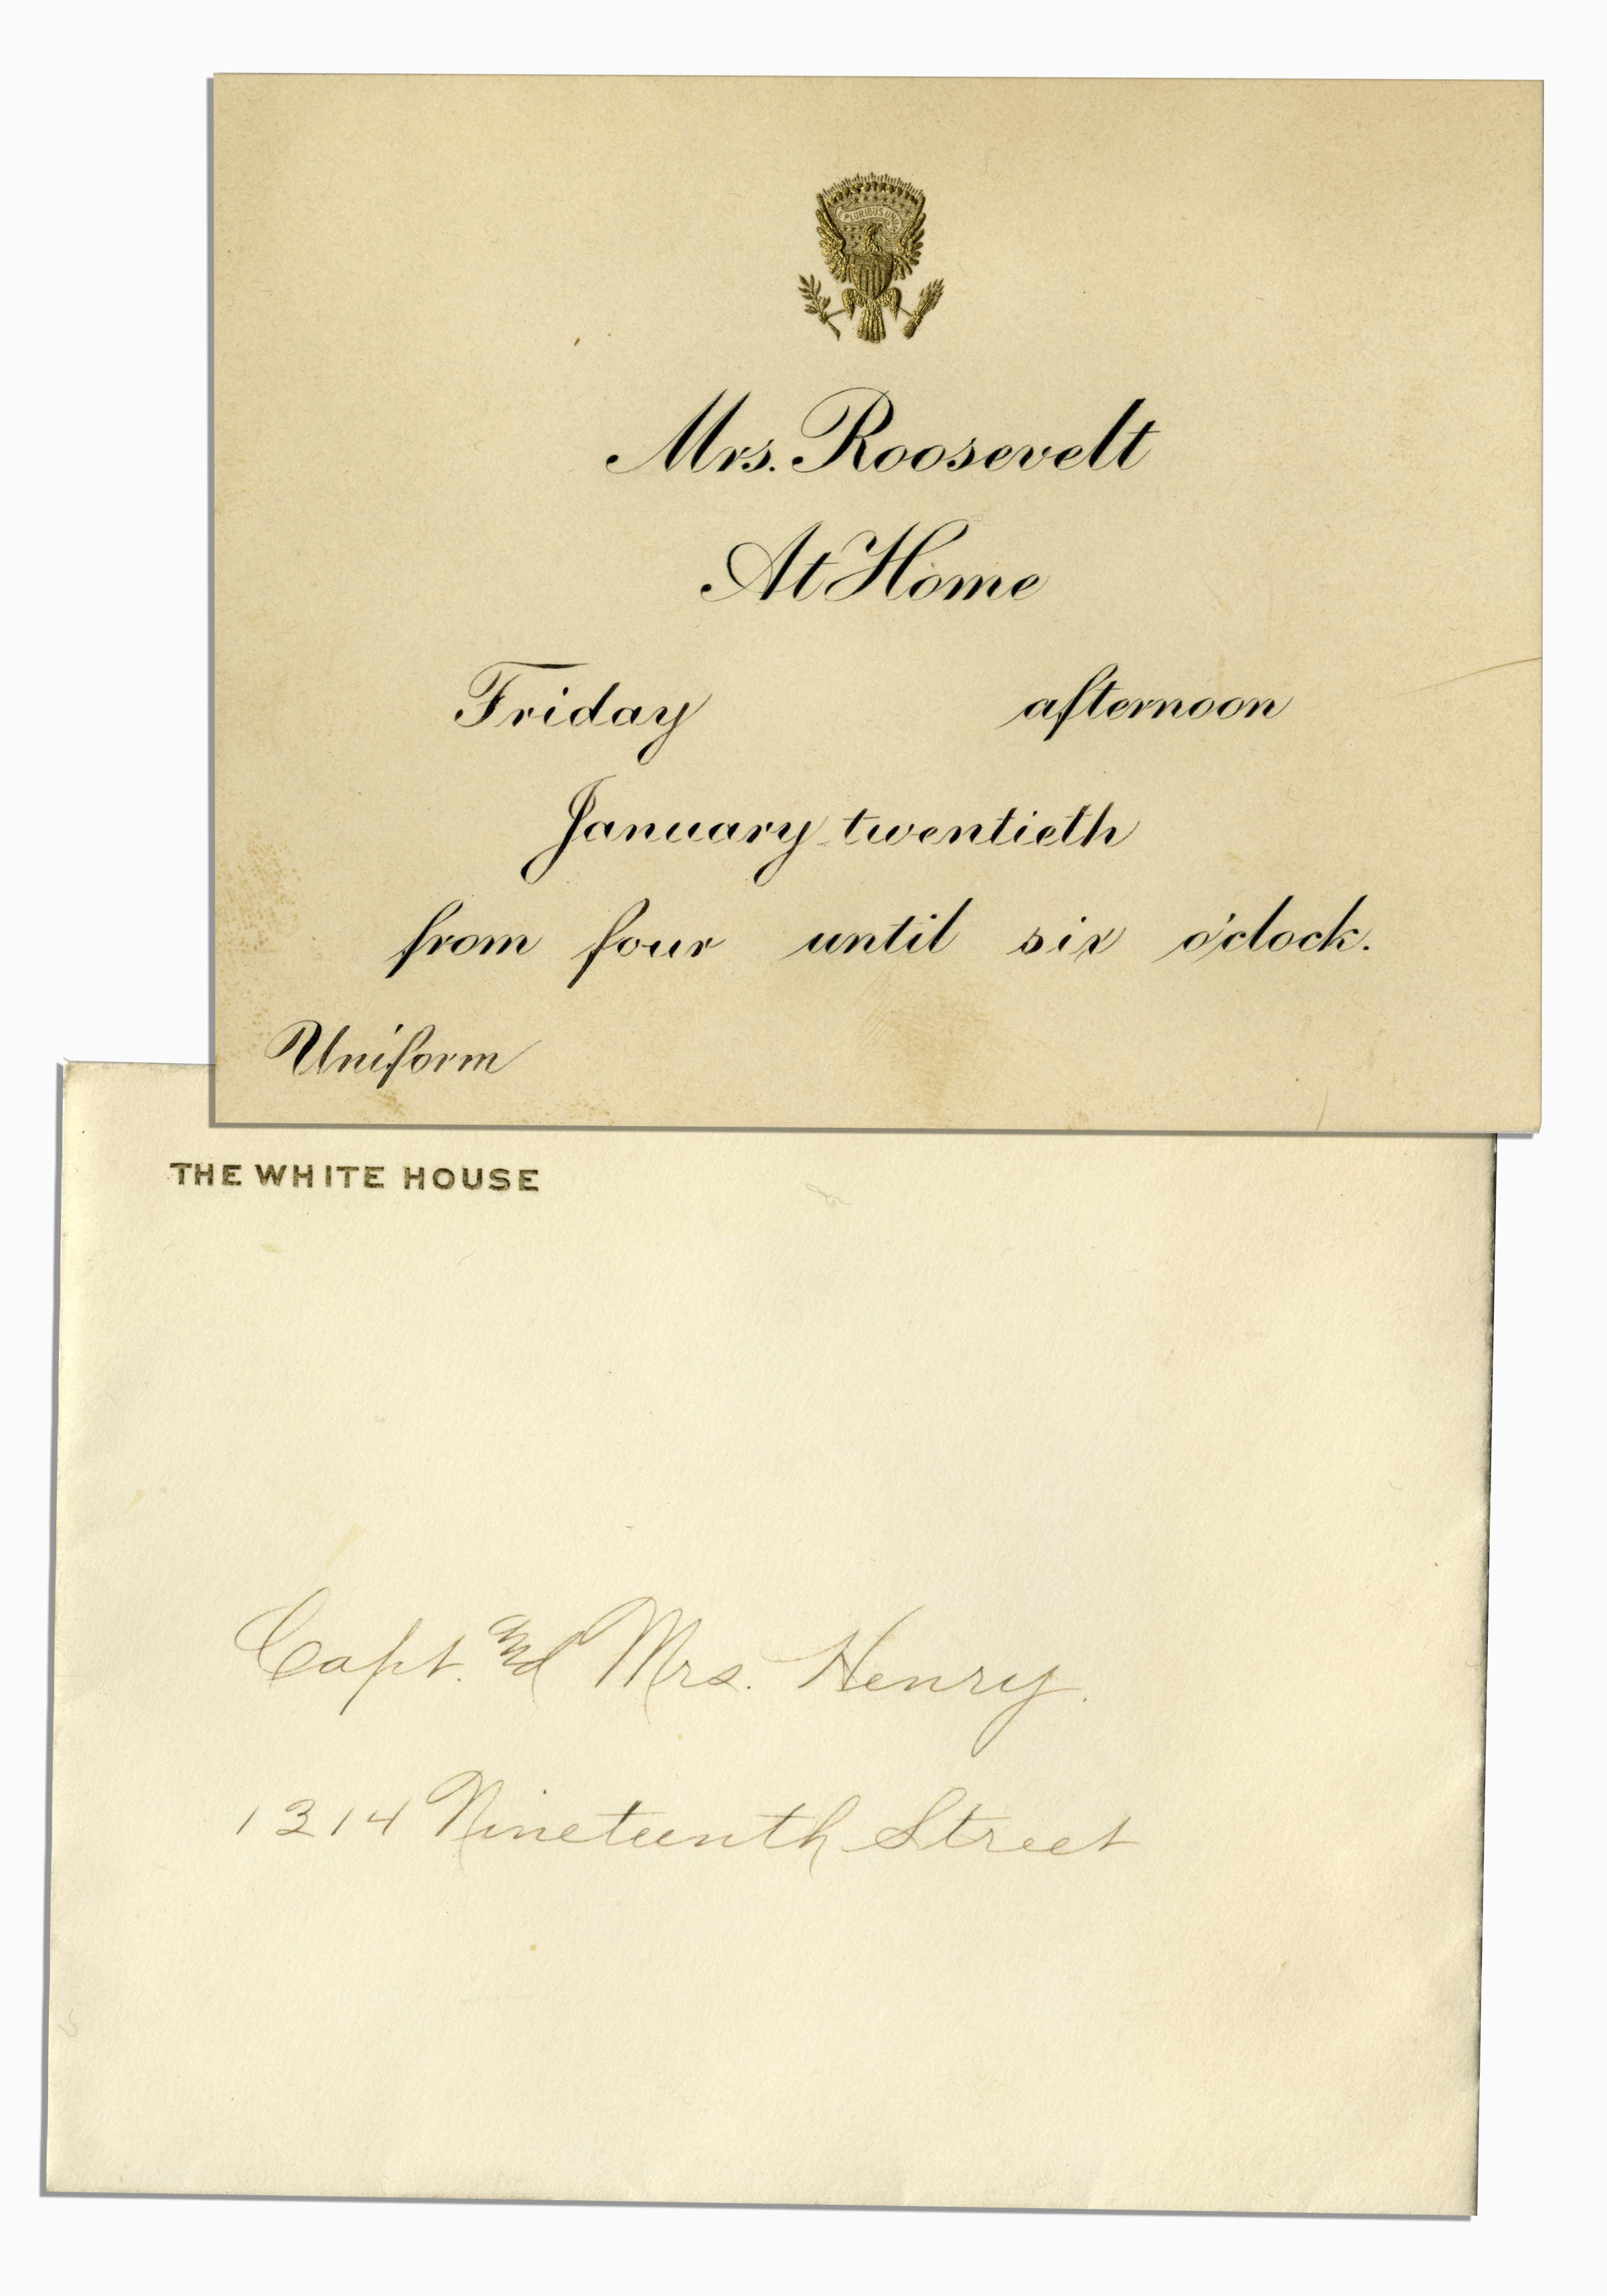 PLURIBUS UNU
Mrs. Roosevelt
At Home
Friday afternoon
January twentieth
from four until six o'clock.
Uniform
THE WHITE HOUSE
Capt. and Mrs. Henry.
1314 Nineteenth Street